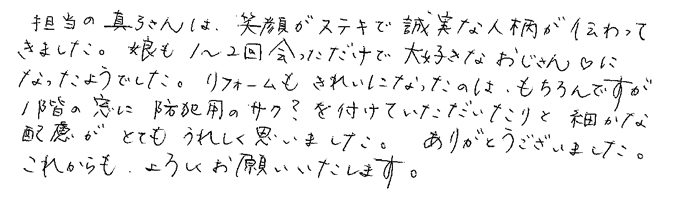 担当の真子さんは、笑顔がステキで誠実な人柄が伝わって
きました。娘も1〜2回会っただけで大好きなおじさん♡に
なったようでした。リフォームもきれいになったのは、もちろんですが
1階の窓に防犯用のサク?を付けていただいたりと細かな
配慮がとてもうれしく思いました。ありがとうございました。
これからも、よろしくお願いいたします。